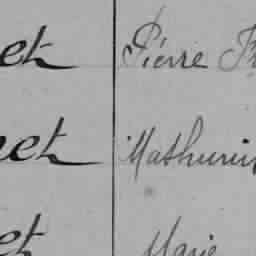 et Pierre
net Mathurin
et Marie